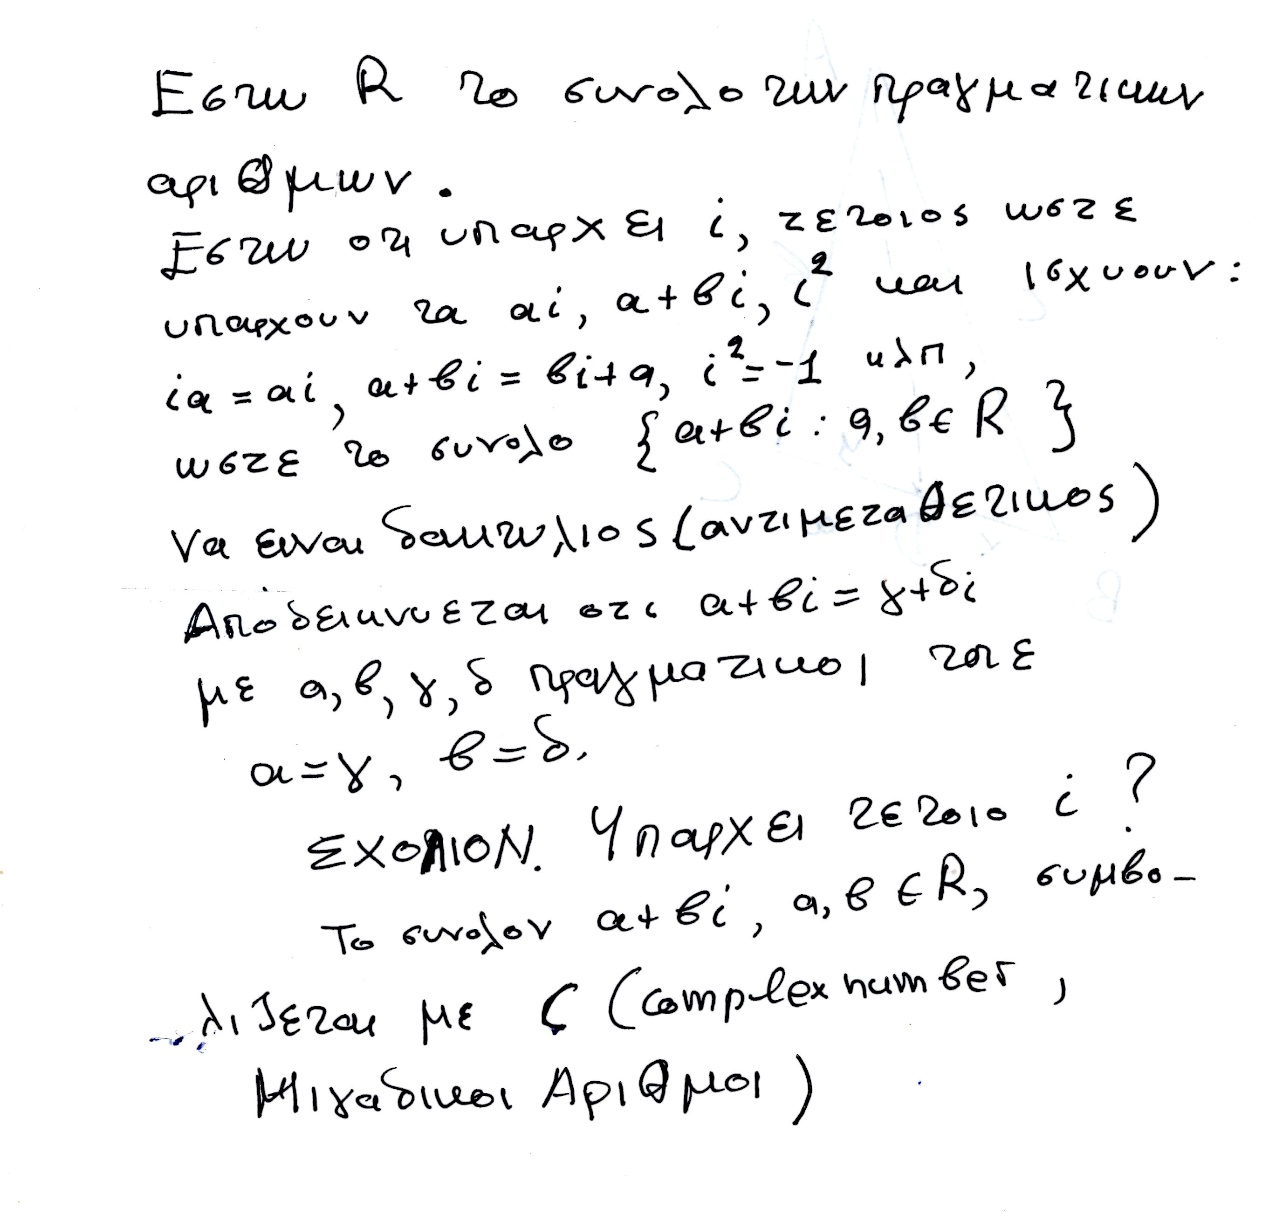 Εστω R το συνολο των πραγματικων
αριθμων.
Εστω οτι υπαρχει i, τετοιος ωστε
υπαρχουν τα αi, α+βi, i² και ισχυουν:
iα = αi, α+βi = βi+α, i²=-1 κλπ,
ωστε το συνολο {α+βi : α, β∈R}
να ειναι δακτυλιος (αντιμεταθετικος)
Αποδεικνυεται οτι α+βi = γ+δi
με α, β, γ, δ πραγματικοι τοτε
α=γ, β=δ.
ΣΧΟΛΙΟΝ. Υπαρχει τετοιο i ?
Το συνολον α+βi, α, β ∈ R, συμβο-
λιζεται με C (complex number,
Μιγαδικοι Αριθμοι)